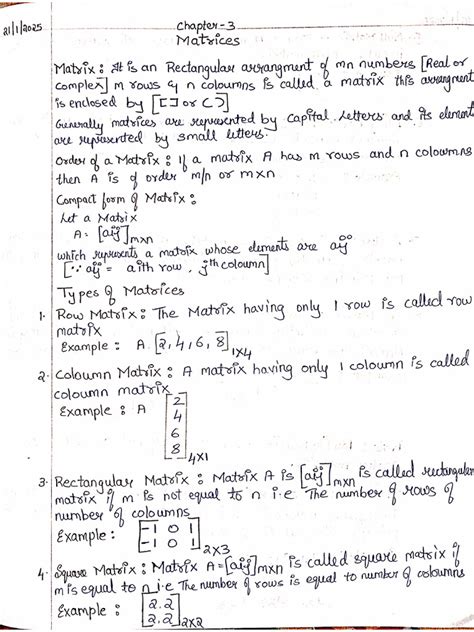 21/1/2025
Chapter-3
Matrices
Matrix : It is an Rectangular arrangment of mn numbers [Real or
complex] m rows & n coloumns is called a matrix this arrangement
is enclosed by [[ ] or ( )]
Generally matrices are represented by Capital Letters and its element
are represented by small letters.
Order of a Matrix : If a matrix A has m rows and n coloumns
then A is of order m/n or m×n
Compact form of Matrix :
Let a Matrix
A = [aij]m×n
which represents a matrix whose elements are aij
[∵ aij = aith row, jth coloumn]
Types of Matrices
1. Row Matrix : The Matrix having only 1 row is called row
matrix
Example : A [2, 4, 6, 8]1×4
2. Coloumn Matrix : A matrix having only 1 coloumn is called
coloumn matrix
Example : A [2
4
6
8]4×1
3. Rectangular Matrix : Matrix A is [aij]m×n is called rectangular
matrix if m is not equal to n i.e The number of rows of
number of coloumns
Example : [-1 0 1
-1 0 1]2×3
4. Square Matrix : Matrix A=[aij]m×n is called square matrix if
m is equal to n i.e The number of rows is equal to number of coloumns
Example : [2.2
2.2]2×2